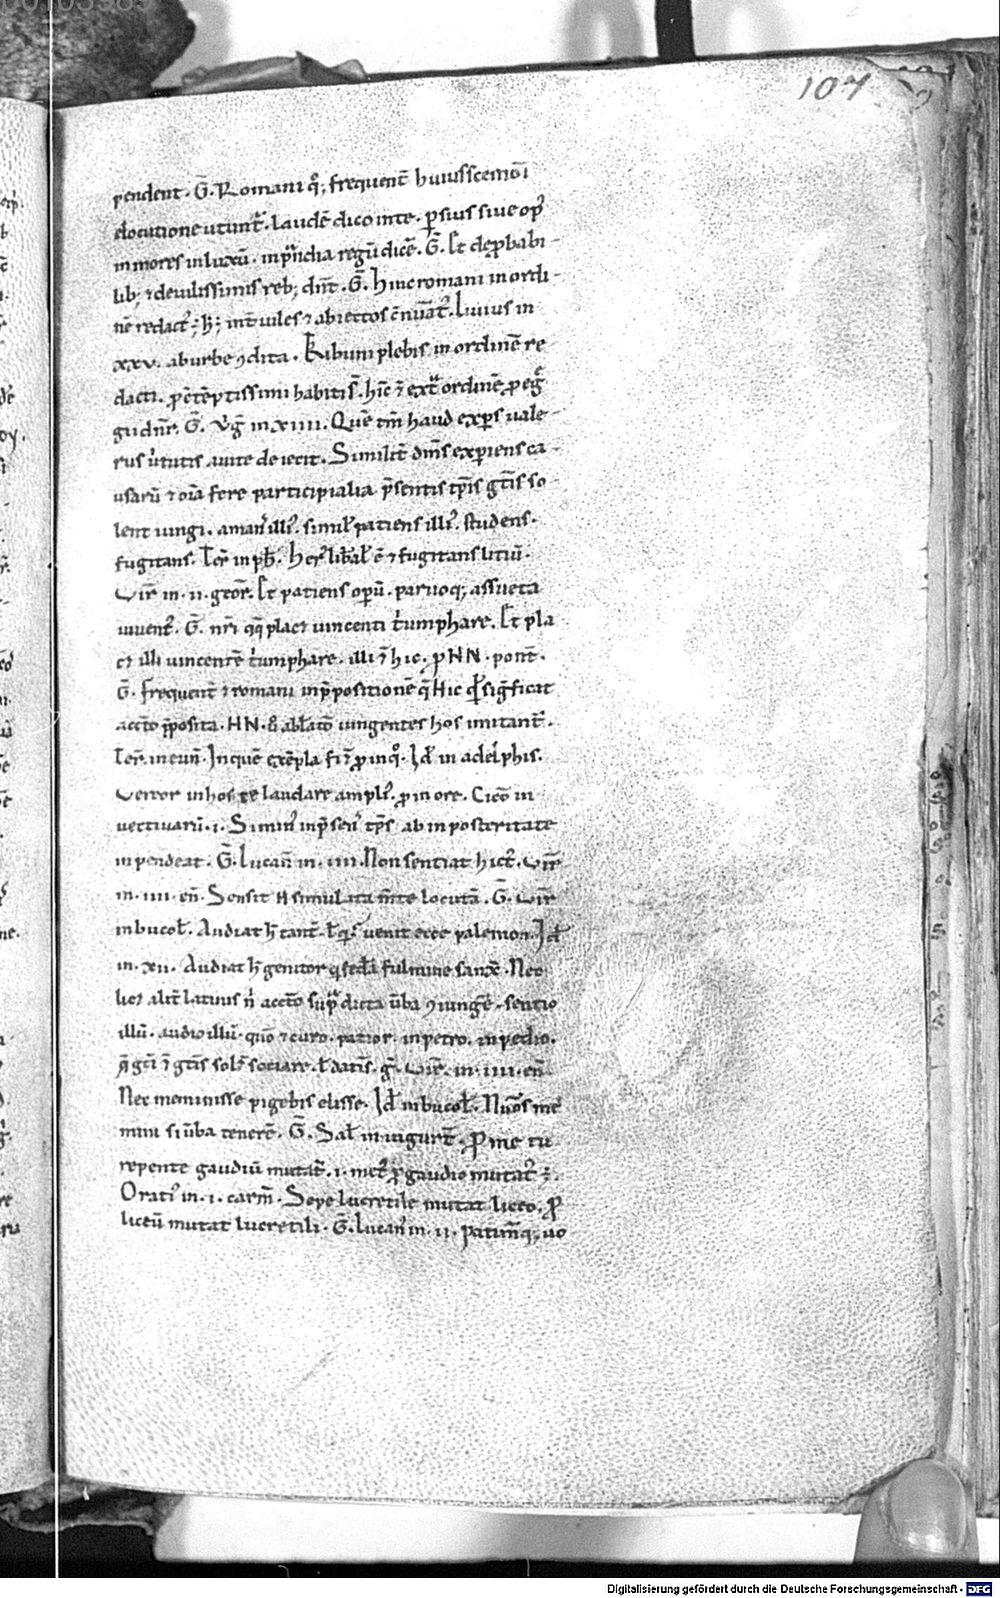 107
pendent. G̅. Romani q̊; frequent̅ huiuscemoi̅
elocutione utunt᷑. Laude̅ dico in te. p̱sius siue op᷒
in mores in luxu̅. in pri̅cha regu̅ dice̅. G̅. Et de p̱babi-
lib; ⁊ de uilissimis reb; dn̅t. G̅. Hinc romani in ordi-
ne̅ redact᷒. h̅; int̅ uiles ⁊ abiectos c̅nu̅at᷒. Liuius in
xxv. ab urbe ꝯdita. Tribuni plebis in ordine̅ re
dacti. p̱ c̅te̅ptissimi habitis̅. hi̅c ⁊ ext᷑ ordine̅ p̱eg̊
gii dn̅r. G̅. V̅g̅ in xiiii. Que̅ tm̅ haud exp̱s uale-
rus u̍tutis auite deiecit. Similit̅ dm̅s exp̱iens ca-
usaru̅ ⁊ oi̅a fere participialia p̅sentis tp̅is gt̅is so-
lent iungi. aman̅ illi᷒. simil̅ patiens illi᷒. studens.
fugitans. Ter̅ in ph̅. Her᷒ lib̅al̅ e̅ ⁊ fugitans litiu̅.
Vir̅ in. ii. geor̅. Et patiens op̱u̅. paruoq; assueta
iuuent᷒. G̅. nr̅i qq̅ plac⁊ uincenti t̍umphare. Et pla
c⁊ illi uincente̅ t̍umphare. illi ⁊ hic. p̱ HN. pont̅.
G̅. frequent̅ ⁊ romani in p̅positione̅ q̅ Hic qd̅ sig̅ficat
acct̅o p̅posita. HN. u̅ ablat̅o iungentes hos imitant᷑.
Ter̅. in eun̅. In que̅ exe̅pla fi ⁊ p̱ in q̊. Id̅ in adelphis.
Vereor in hos te laudare ampli᷒. p̱ in ore. Cice̅o in
uectiuaru̅. i. Si min᷒ in p̅sen᷒ tp̅s ab in posteritate
inpendeat. G̅. Lucan̅ in. iiii. Non sentiat hict᷒. Vir̅
in. iiii. en̅. Sensit n̅ simulata m̅te locuta̅. G̅. Vir̅
in bucol̅. Audiat h̅ tant̅. ł qi᷒ uenit ecce palemon. Id̅
in. xii. Audiat h̅ genitor q fed̅a fulmine sanx̅. Nec
lic⁊ alit̅ latinis n̍ acct̅o sup̅ dicta u̅ba ꝯiunge̅. sentio
illu̅. audio illu̅. quo̅ ⁊ curo. patior. in petro. in pedio.
ꝗ̅ gt̅i ⁊ gt̅is sol̅ sociare. ł datis̅. g̅. Vir̅. in. iiii. en̅
Nec meminisse pigebis elisse. Id̅ in bucol̅. Nu̅os me
mini si u̅ba tenere̅. G̅. Sal̅ in iugurt̅. P̱ me tu
repente gaudiu̅ mutat᷑. i. met᷒ p̱ gaudio mutat᷒ ÷.
Orati᷒ in. i. carm̅. Sepe lucretile mutat liceo. p̱
liceu̅ mutat lucretili. G̅. Lucan᷒ in. ii. patriu̅q; uo
Digitalisierung gefördert durch die Deutsche Forschungsgemeinschaft - DFG